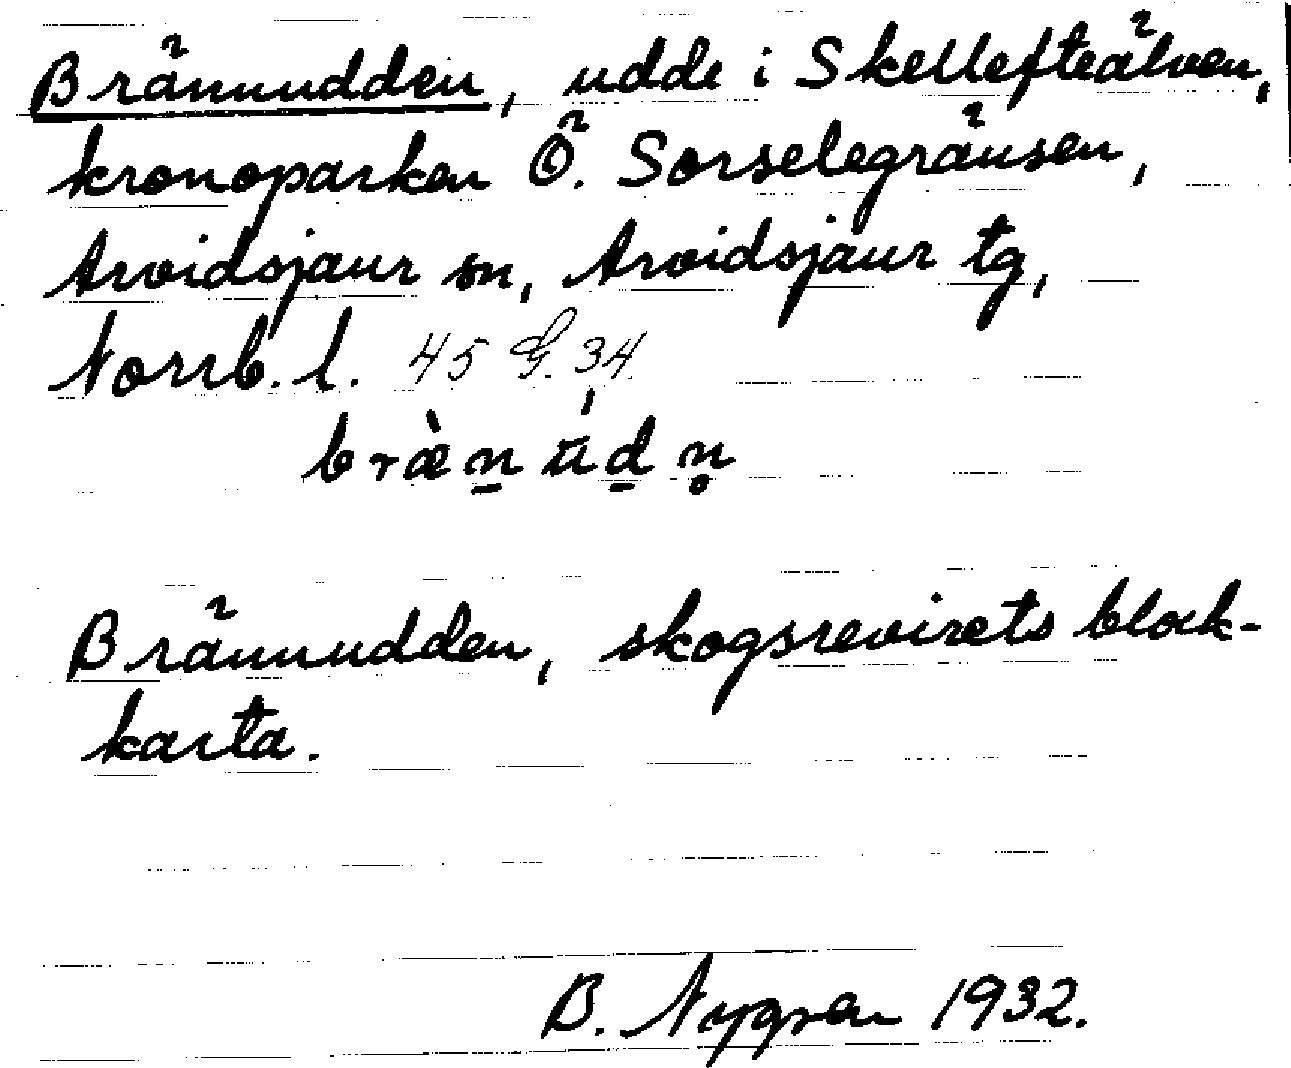 Brännudden, udde i Skellefteälven,
kronoparken Ö. Sorselegränsen,
Arvidsjaur sn, Arvidsjaur tg,
Norrb. l. 45 G. 34
bræ̀n̠ ūd̠ n̥
Brännudden, skogsrevirets block-
karta.
B. Nygren 1932.